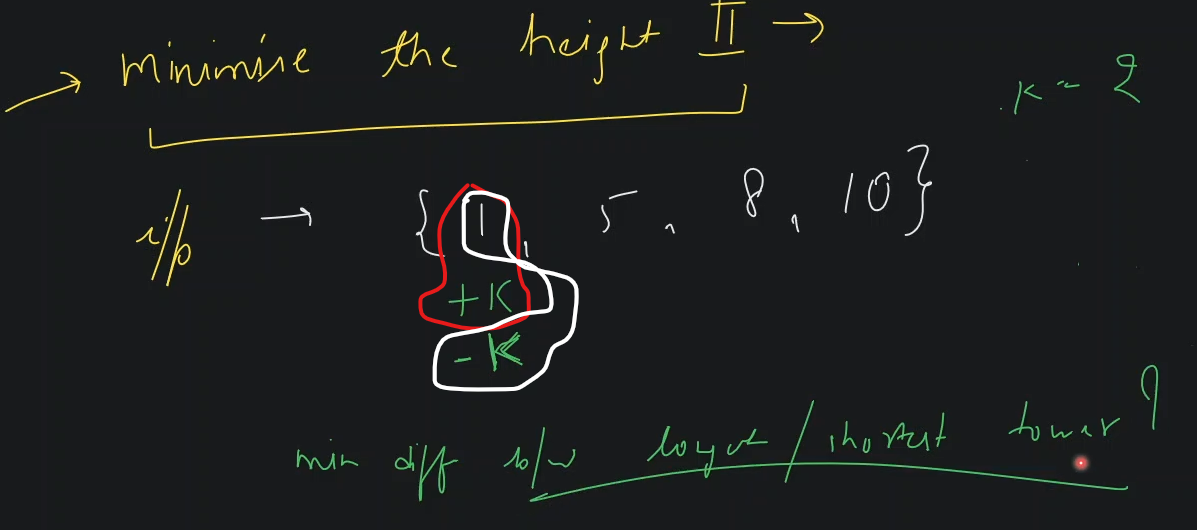 → minimise the height II →
K = 2
i/p → { 1, 5, 8, 10}
+K
-K
min diff b/w longest / shortest tower ?